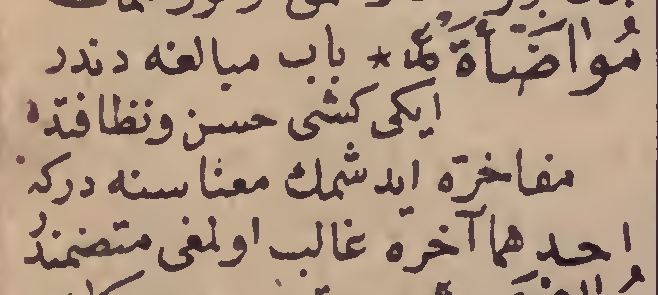 مُواضَأَة * باب مبالغه دندر
ايكى كشى حسن ونظافتده
مفاخره ايدشمك معناسنه دركه
احدهما آخره غالب اولمغى متضمندُر